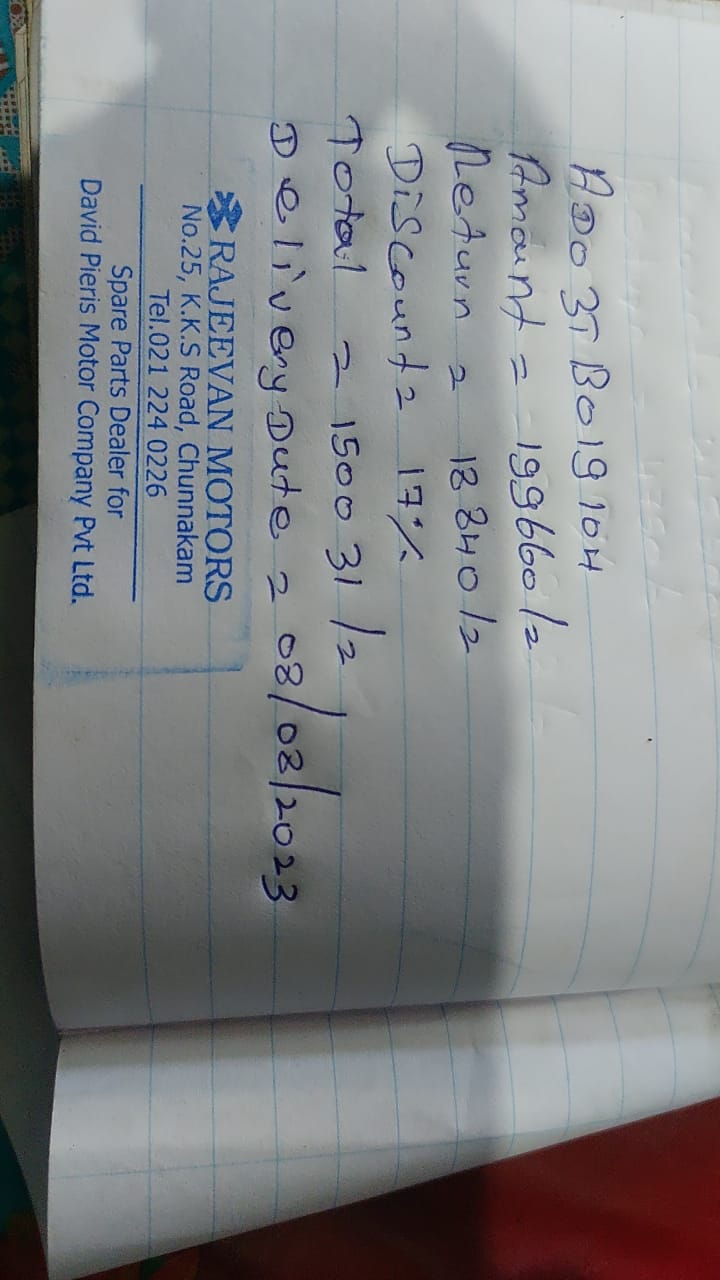 ADO 3T B019 104
Amount = 199660/=
Return = 18840/=
Discount = 17%
Total = 150031/=
Delivery Date = 08/08/2023
RAJEEVAN MOTORS
No.25, K.K.S Road, Chunnakam
Tel.021 224 0226
Spare Parts Dealer for
David Pieris Motor Company Pvt Ltd.